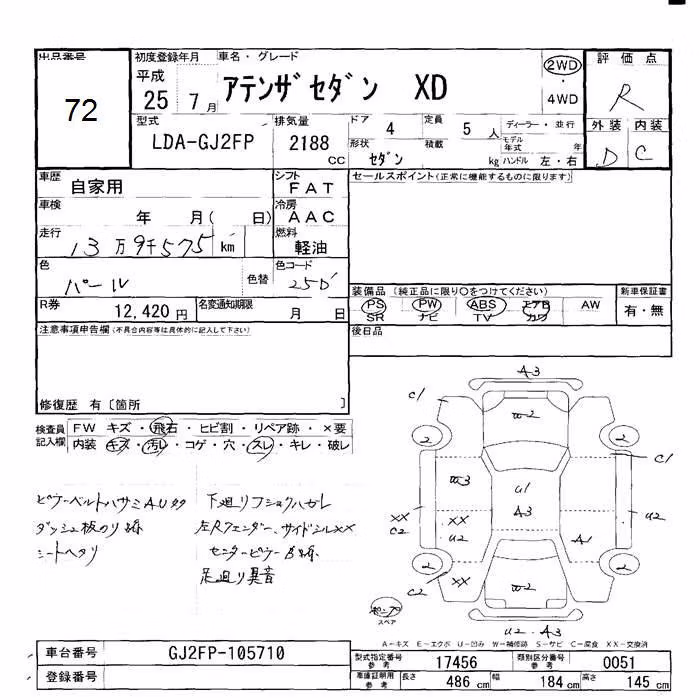 出品番号
72
初度登録年月
平成
25 7月
車名・グレード
アテンザセダン XD
2WD
・
4WD
評価点
R
型式
LDA-GJ2FP
排気量
2188 cc
ドア 4
定員 5 人
形状 セダン
積載 kg
ディーラー・並行
モデル年式 年
ハンドル 左・右
外装 内装
D C
車歴 自家用
シフト FAT
セールスポイント(正常に機能するものに限ります)
車検 年 月( 日)
冷房 AAC
走行 13万9千575 km
燃料 軽油
色 パール
色替
色コード 25D
装備品 (純正品に限り○をつけてください)
新車保証書
PS PW ABS エアB AW
SR ナビ TV カワ
有・無
R券 12,420円
名変通知期限 月 日
後日品
注意事項申告欄(不具合内容等は具体的に記入して下さい)
修復歴 有〔箇所 〕
検査員記入欄
FW キズ・飛石・ヒビ割・リペア跡・×要
内装 キズ・汚れ・コゲ・穴・スレ・キレ・破レ
下廻リフショクハガレ
左Rフェンダー、サイドシルXX
足廻り異音
シートヘタリ
A3
C1
W2
2 2
C1
W3
U1
A3
XX
C2
XX
U2
U2
A1
2 2
XX
C2
W2
スペア
U2・A3
A-キズ E-エクボ U-凹み W-補修跡 S-サビ C-腐食 XX-交換済
車台番号 GJ2FP-105710
登録番号
型式指定番号 参考 17456
類別区分番号 参考 0051
車庫証明用 参考
長さ 486 cm
幅 184 cm
高さ 145 cm